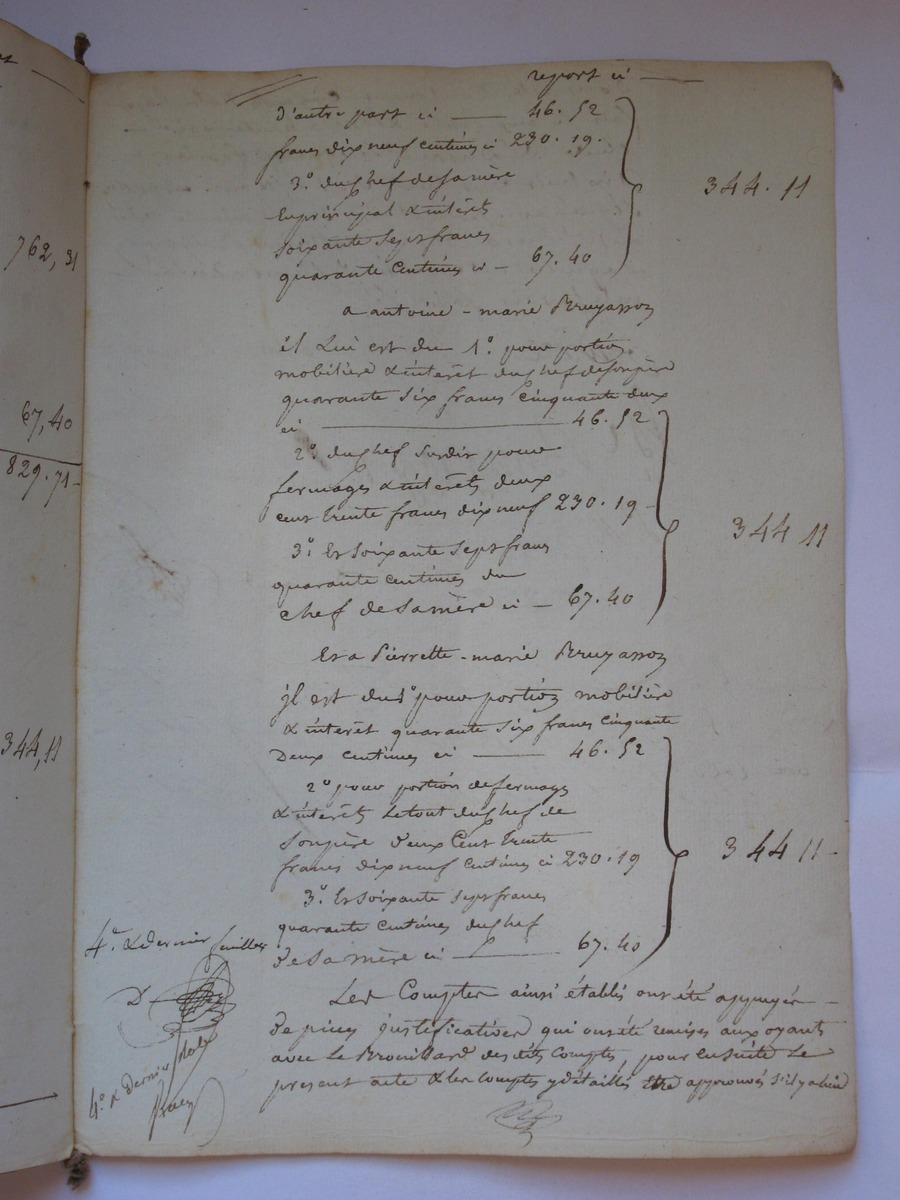 762, 31
67,40
829.71
344,11
report ci
d'autre part ci 46.52
francs dix neuf centimes ci 230.19.
3.º du chef de sa mère
En principal & intérêts
soixante sept francs
quarante centimes ci 67.40
344.11
a antoine-marie Bruyasson
il Lui est du 1.º pour portion
mobilière & intérêt du chef de son père
quarante six francs cinquante deux
ci 46.52
2.º du chef susdit pour
fermages & intérêts deux
cent trente francs dix neuf 230.19
3.º Et soixante sept francs
quarante centimes du
chef de sa mère ci 67.40
344 11
Et a Pierrette-marie Bruyasson
il est du 1º pour portion mobilière
& intérêt quarante six francs cinquante
Deux centimes ci 46.52
2º pour portion de fermage
& intérêts Le tout du chef de
son père deux Cent trente
francs dix neuf centimes ci 230.19
3.º Et soixante sept francs
quarante centimes du chef
de sa mère ci 67.40
344 11
4.e & dernier feuillet
Les Comptes ainsi établis ont été appuyés
de pièces justificatives qui ont été remises aux oyants
avec Le Brouillard des dits Comptes, pour ensuite Le
présent acte & les comptes y détaillés être approuvés s'il y a lieu
4.º & Dernier